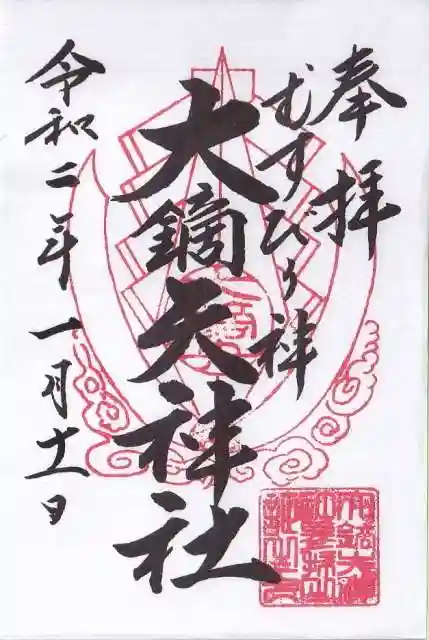 奉拝
むすびの神
大鏑矢神社
令和二年一月十一日